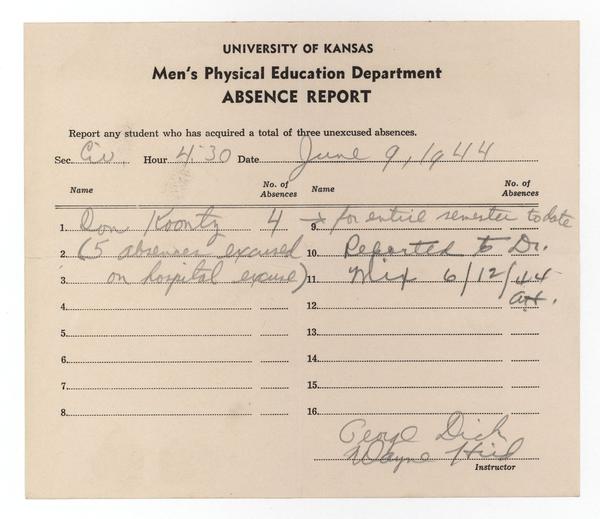 UNIVERSITY OF KANSAS
Men's Physical Education Department
ABSENCE REPORT
Report any student who has acquired a total of three unexcused absences.
Sec. Civ. Hour 4:30 Date June 9, 1944
Name No. of Absences Name No. of Absences
1. Don Koontz 4 → for entire semester to date 9.
2. (5 absences excused 10. Reported to Dr.
3. on hospital excuse) 11. Mix 6/12/44
4. 12.
5. 13.
6. 14.
7. 15.
8. 16.
George Dick
Wayne Hird
Instructor